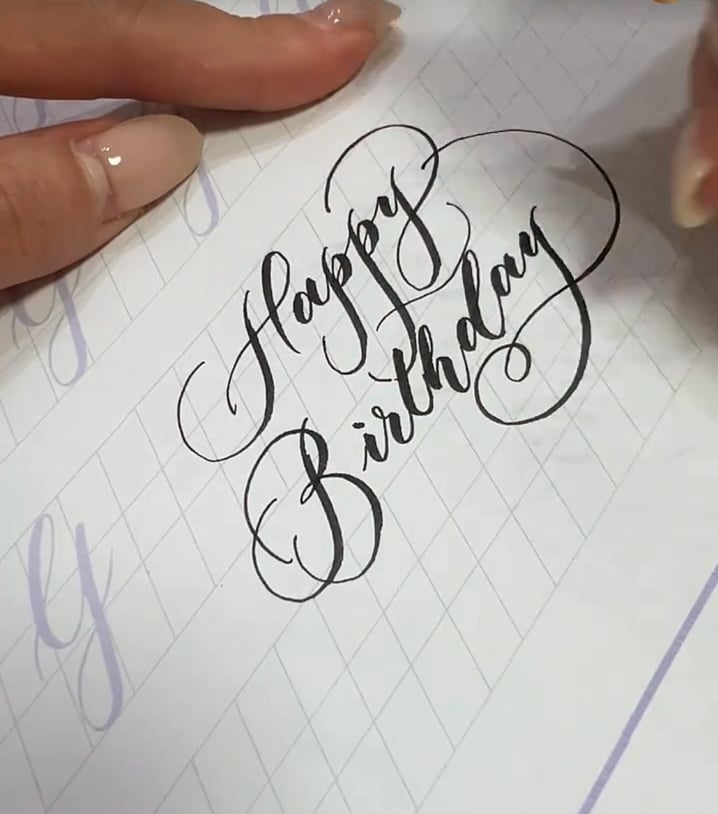 Happy
Birthday
y